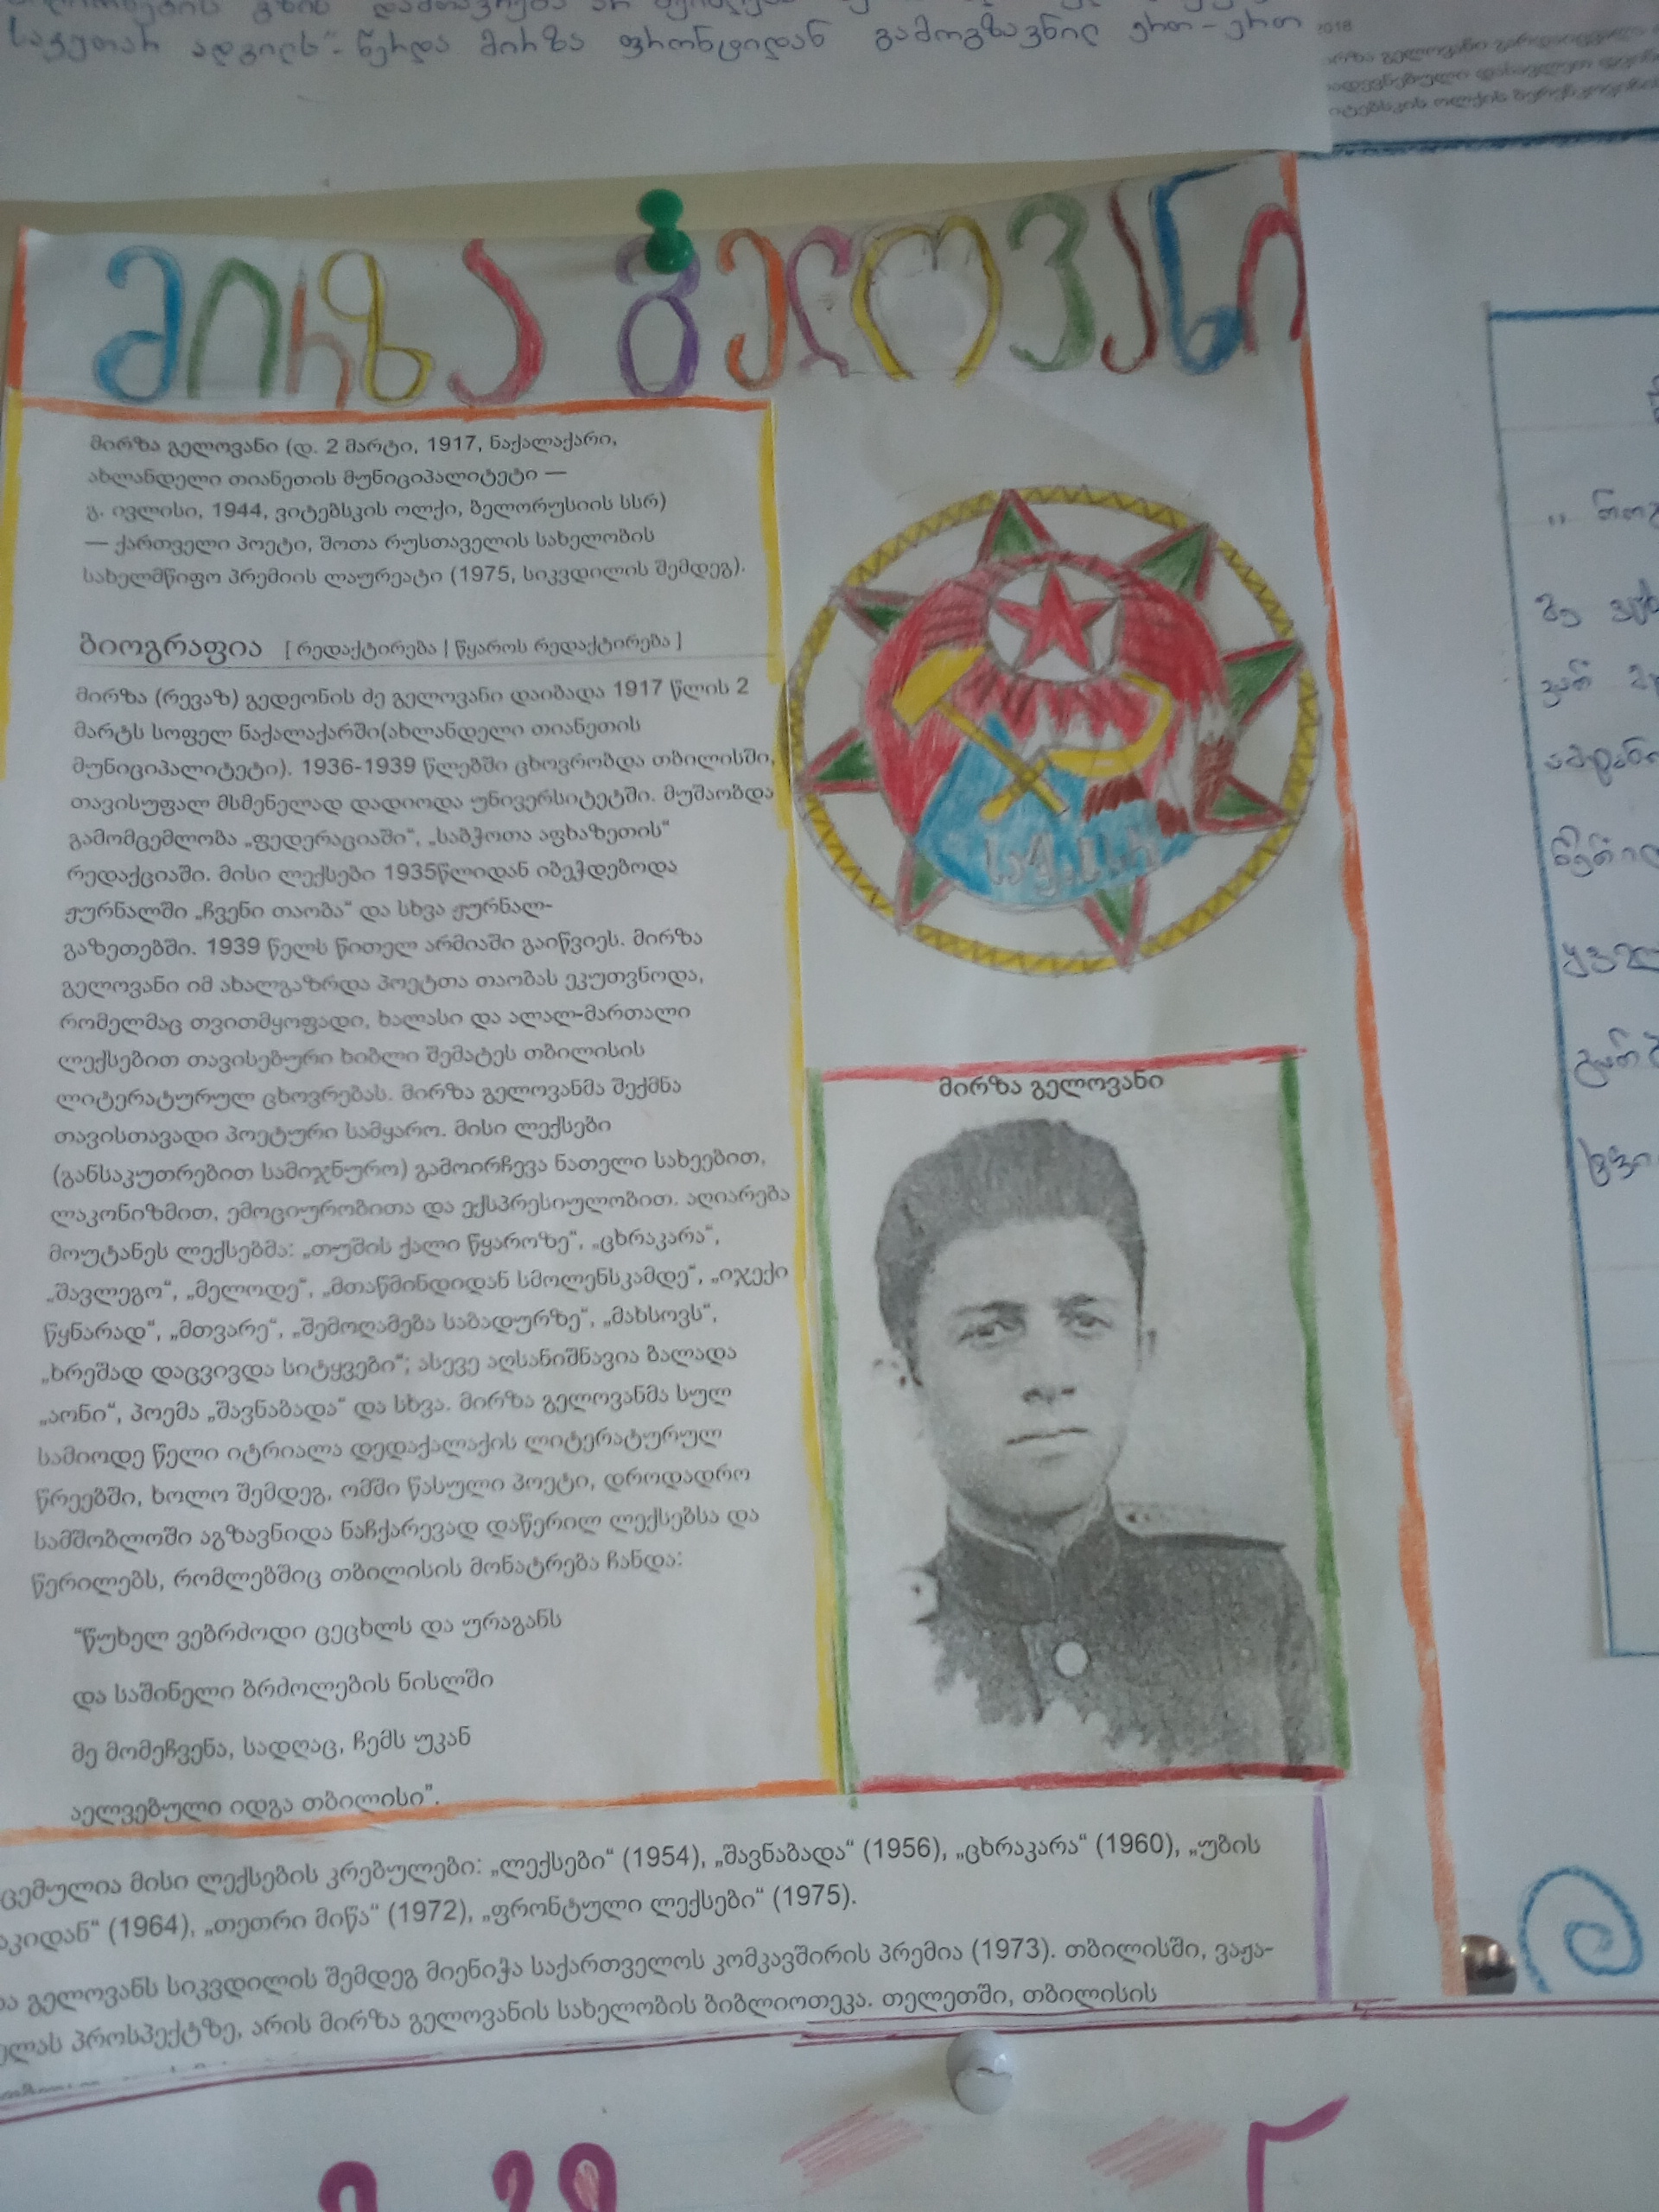 საკუთარ ადგილს"-წერდა მირზა ფრონტიდან გამოგზავნილ ერთ-ერთ
2018
მირზა გელოვანი
მირზა გელოვანი (დ. 2 მარტი, 1917, ნაქალაქარი,
ახლანდელი თიანეთის მუნიციპალიტეტი —
გ. ივლისი, 1944, ვიტებსკის ოლქი, ბელორუსიის სსრ)
— ქართველი პოეტი, შოთა რუსთაველის სახელობის
სახელმწიფო პრემიის ლაურეატი (1975, სიკვდილის შემდეგ).
ბიოგრაფია [ რედაქტირება | წყაროს რედაქტირება ]
მირზა (რევაზ) გედეონის ძე გელოვანი დაიბადა 1917 წლის 2
მარტს სოფელ ნაქალაქარში(ახლანდელი თიანეთის
მუნიციპალიტეტი). 1936-1939 წლებში ცხოვრობდა თბილისში,
თავისუფალ მსმენელად დადიოდა უნივერსიტეტში. მუშაობდა
გამომცემლობა „ფედერაციაში“, „საბჭოთა აფხაზეთის“
რედაქციაში. მისი ლექსები 1935წლიდან იბეჭდებოდა
ჟურნალში „ჩვენი თაობა“ და სხვა ჟურნალ-
გაზეთებში. 1939 წელს წითელ არმიაში გაიწვიეს. მირზა
გელოვანი იმ ახალგაზრდა პოეტთა თაობას ეკუთვნოდა,
რომელმაც თვითმყოფადი, ხალასი და ალალ-მართალი
ლექსებით თავისებური ხიბლი შემატეს თბილისის
ლიტერატურულ ცხოვრებას. მირზა გელოვანმა შექმნა
თავისთავადი პოეტური სამყარო. მისი ლექსები
(განსაკუთრებით სამიჯნურო) გამოირჩევა ნათელი სახეებით,
ლაკონიზმით, ემოციურობითა და ექსპრესიულობით. აღიარება
მოუტანეს ლექსებმა: „თუშის ქალი წყაროზე“, „ცხრაკარა“,
„შავლეგო“, „მელოდე“, „მთაწმინდიდან სმოლენსკამდე“, „იჯექი
წყნარად“, „მთვარე“, „შემოღამება საბადურზე“, „მახსოვს“,
„ხრეშად დაცვივდა სიტყვები“; ასევე აღსანიშნავია ბალადა
„აონი“, პოემა „შავნაბადა“ და სხვა. მირზა გელოვანმა სულ
სამიოდე წელი იტრიალა დედაქალაქის ლიტერატურულ
წრეებში, ხოლო შემდეგ, ომში წასული პოეტი, დროდადრო
სამშობლოში აგზავნიდა ნაჩქარევად დაწერილ ლექსებსა და
წერილებს, რომლებშიც თბილისის მონატრება ჩანდა:
“წუხელ ვებრძოდი ცეცხლს და ურაგანს
და საშინელი ბრძოლების ნისლში
მე მომეჩვენა, სადღაც, ჩემს უკან
აელვებული იდგა თბილისი”.
მირზა გელოვანი
ცემულია მისი ლექსების კრებულები: „ლექსები“ (1954), „შავნაბადა“ (1956), „ცხრაკარა“ (1960), „უბის
აკიდან“ (1964), „თეთრი მიწა“ (1972), „ფრონტული ლექსები“ (1975).
გელოვანს სიკვდილის შემდეგ მიენიჭა საქართველოს კომკავშირის პრემია (1973). თბილისში, ვაჟა-
ელას პროსპექტზე, არის მირზა გელოვანის სახელობის ბიბლიოთეკა. თელეთში, თბილისის